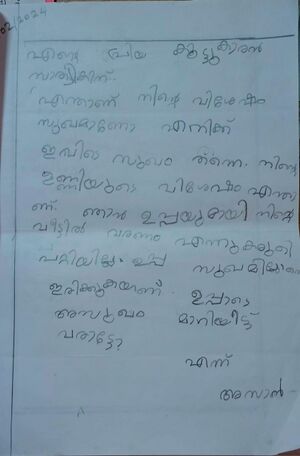 02/2024
എന്റെ പ്രിയ കൂട്ടുകാരൻ
എന്താണ് നിന്റെ വിശേഷം
സുഖമാണോ എനിക്ക്
ഇവിടെ സുഖം തന്നെ. നിന്റെ
ഉണ്ണിയുടെ വിശേഷം എന്താ
ണ് ഞാൻ ഉപ്പയുമായി നിന്റെ
വീട്ടിൽ വരണം എന്നുകരുതി
പറ്റിയില്ല. ഉപ്പ സുഖമില്ലാതെ
ഇരിക്കുകയാണ്. ഉപ്പാടെ
അസുഖം മാറിയിട്ട്
വരാട്ടോ?
എന്ന്
അസാൻ